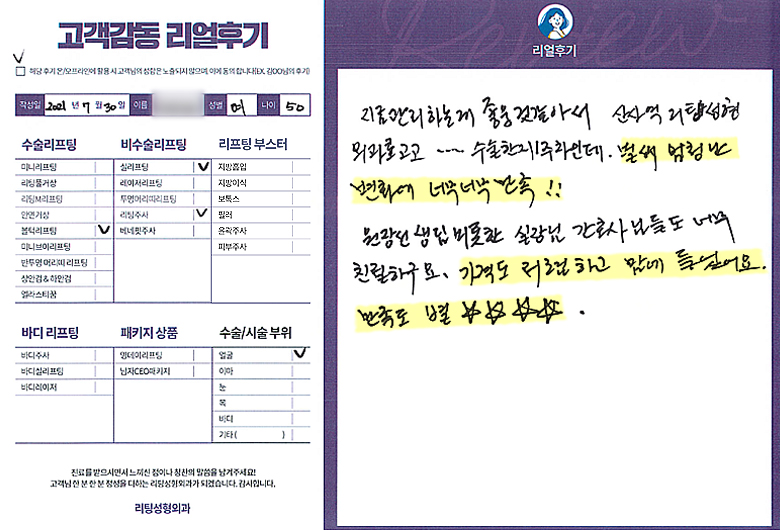 고객감동 리얼후기
해당 후기 온/오프라인에 활용 시 고객님의 성함은 노출되지 않으며, 이에 동의 합니다(EX. 김OO님의 후기)
작성일 2021 년 7 월 30 일 이름 성별 여 나이 50
수술리프팅 비수술리프팅 리프팅 부스터
미니리프팅 실리프팅 지방흡입
리팅풀거상 레이저리프팅 지방이식
리팅브이리프팅 투명머리띠리프팅 보톡스
안면거상 리팅주사 필러
볼턱리프팅 베네핏주사 윤곽주사
미니브이리프팅 피부주사
반투명 머리띠 리프팅
상안검 & 하안검
엘라스티꿈
바디 리프팅 패키지 상품 수술/시술 부위
바디주사 원데이리프팅 얼굴
바디실리프팅 남자CEO패키지 이마
바디레이저 눈
목
바디
기타 ( )
진료를 받으시면서 느끼신 점이나 칭찬의 말씀을 남겨주세요!
고객님 한 분 한 분 정성을 다하는 리팅성형외과가 되겠습니다. 감사합니다.
리팅성형외과
Review
리얼후기
지금관리하는게 좋을것같아서 신사역 리팅성형
외과로고고 ---- 수술한지1주차인데. 벌써 엄청난
변화에 너무너무 만족 !!
원장선생님 비롯한 실장님 간호사님들도 너무
친절하구요. 가격도 저렴하고 맘에 들었어요.
만족도 별 ☆☆☆☆ .